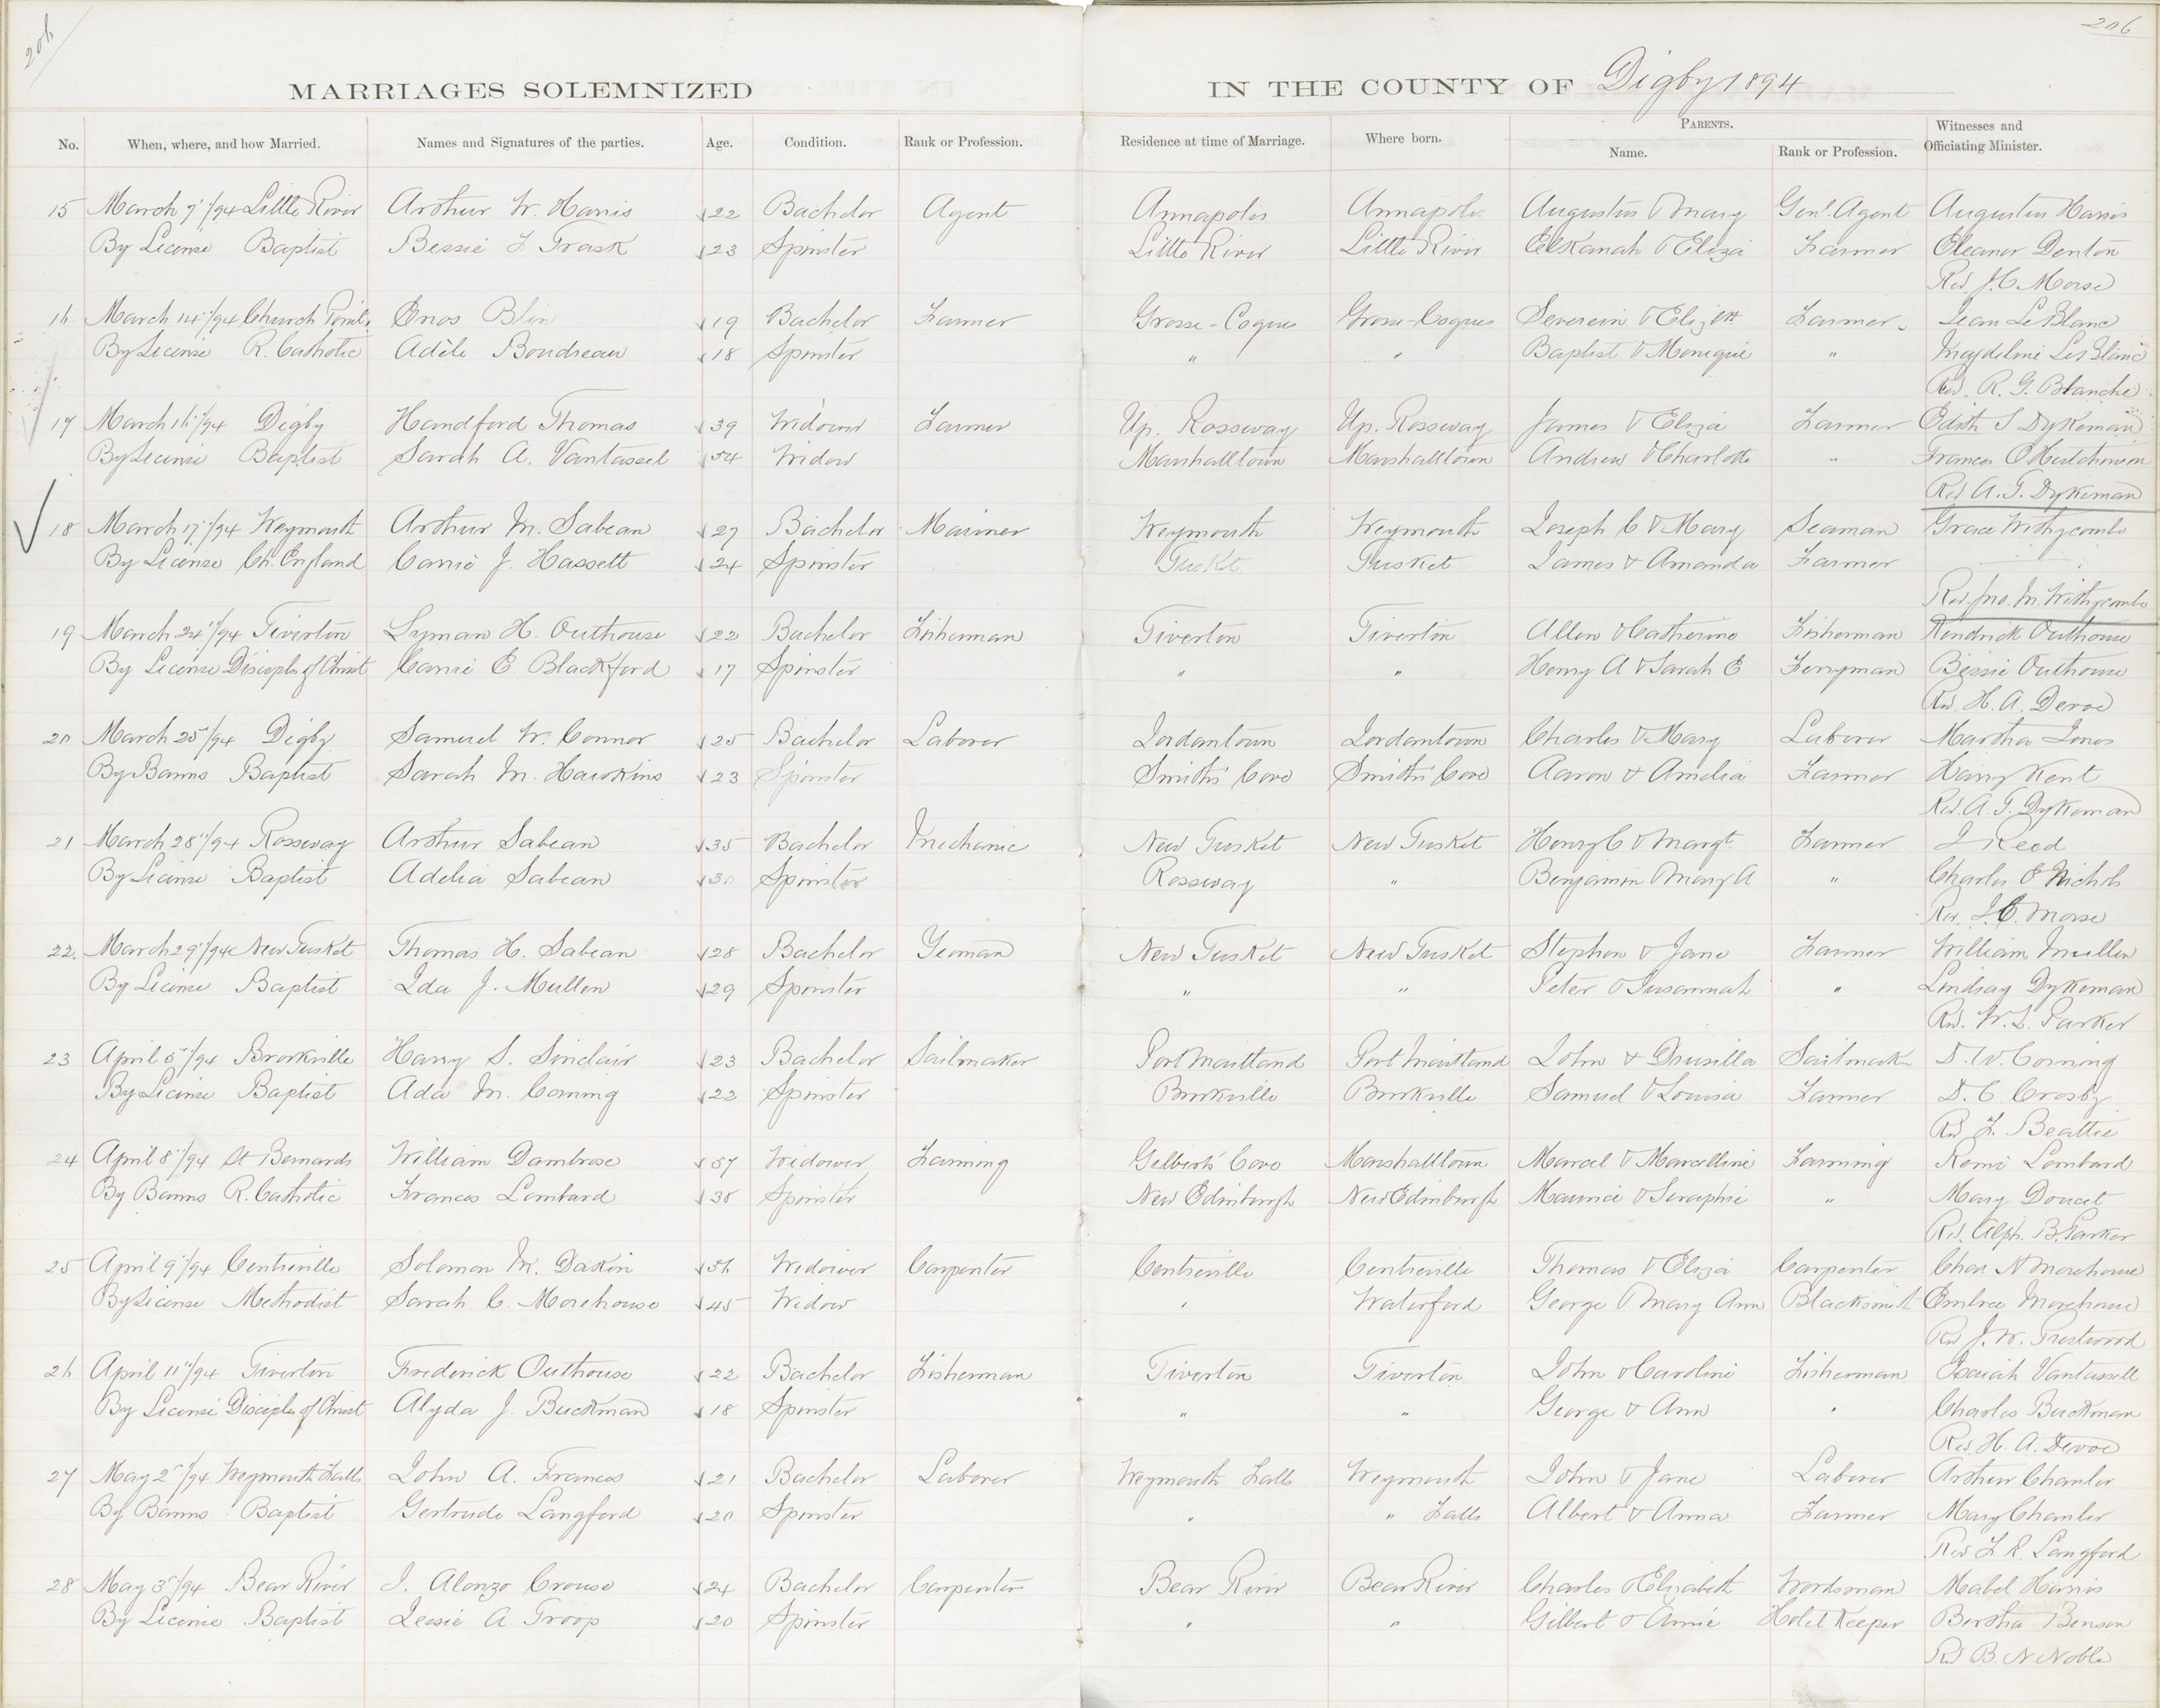 206
206
MARRIAGES SOLEMNIZED IN THE COUNTY OF Digby 1894
No. When, where, and how Married. Names and Signatures of the parties. Age. Condition. Rank or Profession. Residence at time of Marriage. Where born. PARENTS. Name. Rank or Profession. Witnesses and Officiating Minister.
15 March 7"/94 Little River Arthur W. Harris 22 Bachelor Agent Annapolis Annapolis Augustus & Mary Genl. Agent Augustus Harris
By License Baptist Bessie F Trask 23 Spinster Little River Little River Elkanah & Eliza Farmer Eleanor Denton
Rev. J. C. Morse
16 March 14"/94 Church Point. Enos Blin 19 Bachelor Farmer Grosse-Coques Grosse-Coques Severein & Elizth Farmer. Jean LeBlanc
By License R. Catholic Adèle Boudreau 18 Spinster " " Baptist & Monique " Magdeline LeBlanc
Rev. R. G. Blanche
17 March 16"/94 Digby Handford Thomas 39 Widower Farmer Up. Rossway Up. Rossway James & Eliza Farmer Edith S Dykeman
By License Baptist Sarah A. Vantassel 34 Widow Marshalltown Marshalltown Andrew & Charlotte " Frances O Hutchinson
Rev A. T. Dykeman
18 March 17"/94 Weymouth Arthur M. Sabean 27 Bachelor Mariner Weymouth Weymouth Joseph C & Mary Seaman Grace Withycombe
By License Ch. England Carrie J. Hassett 24 Spinster Tusket Tusket James & Amanda Farmer
Rev. Jno. M. Withycombe
19 March 24"/94 Tiverton Lyman H. Outhouse 22 Bachelor Fisherman Tiverton Tiverton Allen & Catherine Fisherman Kendrick Outhouse
By License Disciples of Christ Carrie E. Blackford 17 Spinster " " Henry A & Sarah E Ferryman Bessie Outhouse
Rev. H. A. Devoe
20 March 25"/94 Digby Samuel W. Connor 25 Bachelor Laborer Jordantown Jordantown Charles & Mary Laborer Martha Jones
By Banns Baptist Sarah M. Hawkins 23 Spinster Smith's Cove Smith's Cove Aaron & Amelia Farmer Harry Kent
Rev. A. T. Dykeman
21 March 28"/94 Rossway Arthur Sabean 35 Bachelor Mechanic New Tusket New Tusket Henry C & Margt. Farmer J Reed
By License Baptist Adelia Sabean 30 Spinster Rossway " Benjamin & Mary A " Charles E Nichols
Rev. J. C. Morse
22. March 29"/94 New Tusket Thomas H. Sabean 28 Bachelor Yeoman New Tusket New Tusket Stephen & Jane Farmer William Mullen
By License Baptist Ida J. Mullen 29 Spinster " " Peter & Susannah " Lindsay Dykeman
Rev. W. L. Parker
23 April 5"/94 Brookville Harry S. Sinclair 23 Bachelor Sailmaker Port Maitland Port Maitland John & Drusilla Sailmaker D. W. Corning
By License Baptist Ada M. Corning 22 Spinster Brookville Brookville Samuel & Louisa Farmer D. C. Crosby
Rev F. Beattie
24 April 8"/94 St Bernards William Dambrose 57 Widower Farming Gilberts' Cove Marshalltown Marcel & Marcelline Farming Remi Lombard
By Banns R. Catholic Frances Lombard 38 Spinster New Edinburgh New Edinburgh Maurice & Seraphie " Mary Doucet
Rev. Alph. B. Parker
25 April 9"/94 Centreville Solomon M. Dakin 56 Widower Carpenter Centreville Centreville Thomas & Eliza Carpenter Chas N Morehouse
By License Methodist Sarah C. Morehouse 45 Widow " Waterford George & Mary Ann Blacksmith Embree Morehouse
Rev J. W. Prestwood
26 April 11"/94 Tiverton Frederick Outhouse 22 Bachelor Fisherman Tiverton Tiverton John & Caroline Fisherman Isaiah Vantassell
By License Disciples of Christ Alyda J. Buckman 18 Spinster " " George & Ann " Charles Buckman
Rev. H. A. Devoe
27 May 2"/94 Weymouth Falls John A. Francis 21 Bachelor Laborer Weymouth Falls Weymouth John & Jane Laborer Arthur Chanler
By Banns Baptist Gertrude Langford 20 Spinster " " Falls Albert & Anna Farmer Mary Chanler
Rev F. R. Langford
28 May 3"/94 Bear River J. Alonzo Crouse 24 Bachelor Carpenter Bear River Bear River Charles & Elizabeth Woodsman Mabel Harris
By License Baptist Jessie A. Troop 20 Spinster " " Gilbert & Annie Hotel Keeper Bertha Benson
Rev B. N. Noble